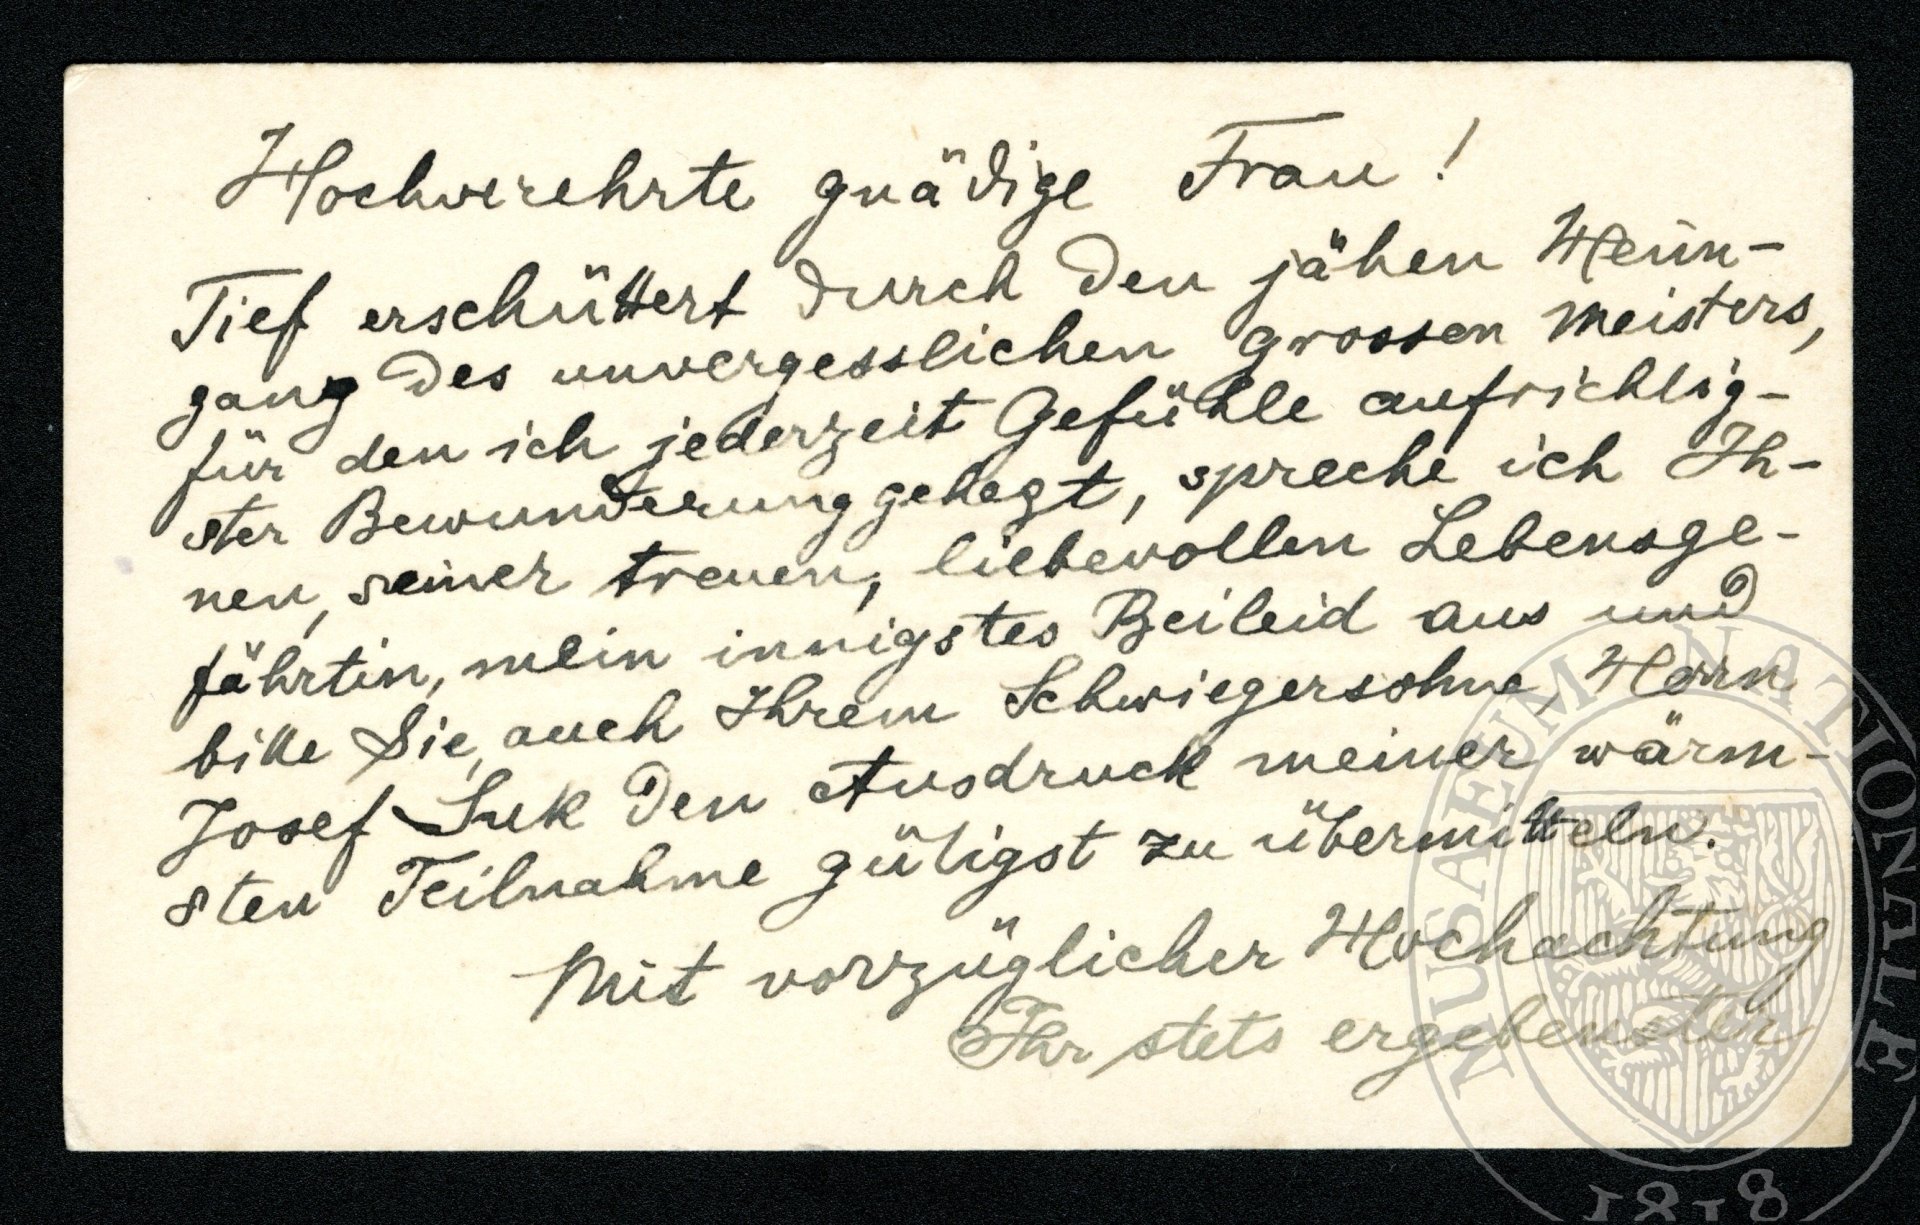 Hochverehrte gnädige Frau!
Tief erschüttert durch den jähen Heim-
gang des unvergesslichen grossen Meisters,
für den ich jederzeit Gefühle aufrichtig-
ster Bewunderung gehegt, spreche ich Ih-
nen, seiner treuen, liebevollen Lebensge-
fährtin, mein innigstes Beileid aus und
bitte Sie, auch Ihrem Schwiegersohne, Herrn
Josef Suk den Ausdruck meiner wärm-
sten Teilnahme gütigst zu übermitteln.
Mit vorzüglicher Hochachtung
Ihr stets ergebenster
MUSAEUM NATIONALE
1818